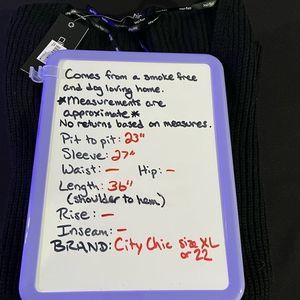 Comes from a smoke free
and dog loving home.
*Measurements are
approximate*
No returns based on measures.
Pit to pit: 23"
Sleeve: 27"
Waist: - Hip: -
Length: 36"
(shoulder to hem)
Rise: -
Inseam: -
BRAND: City Chic size XL
or 22